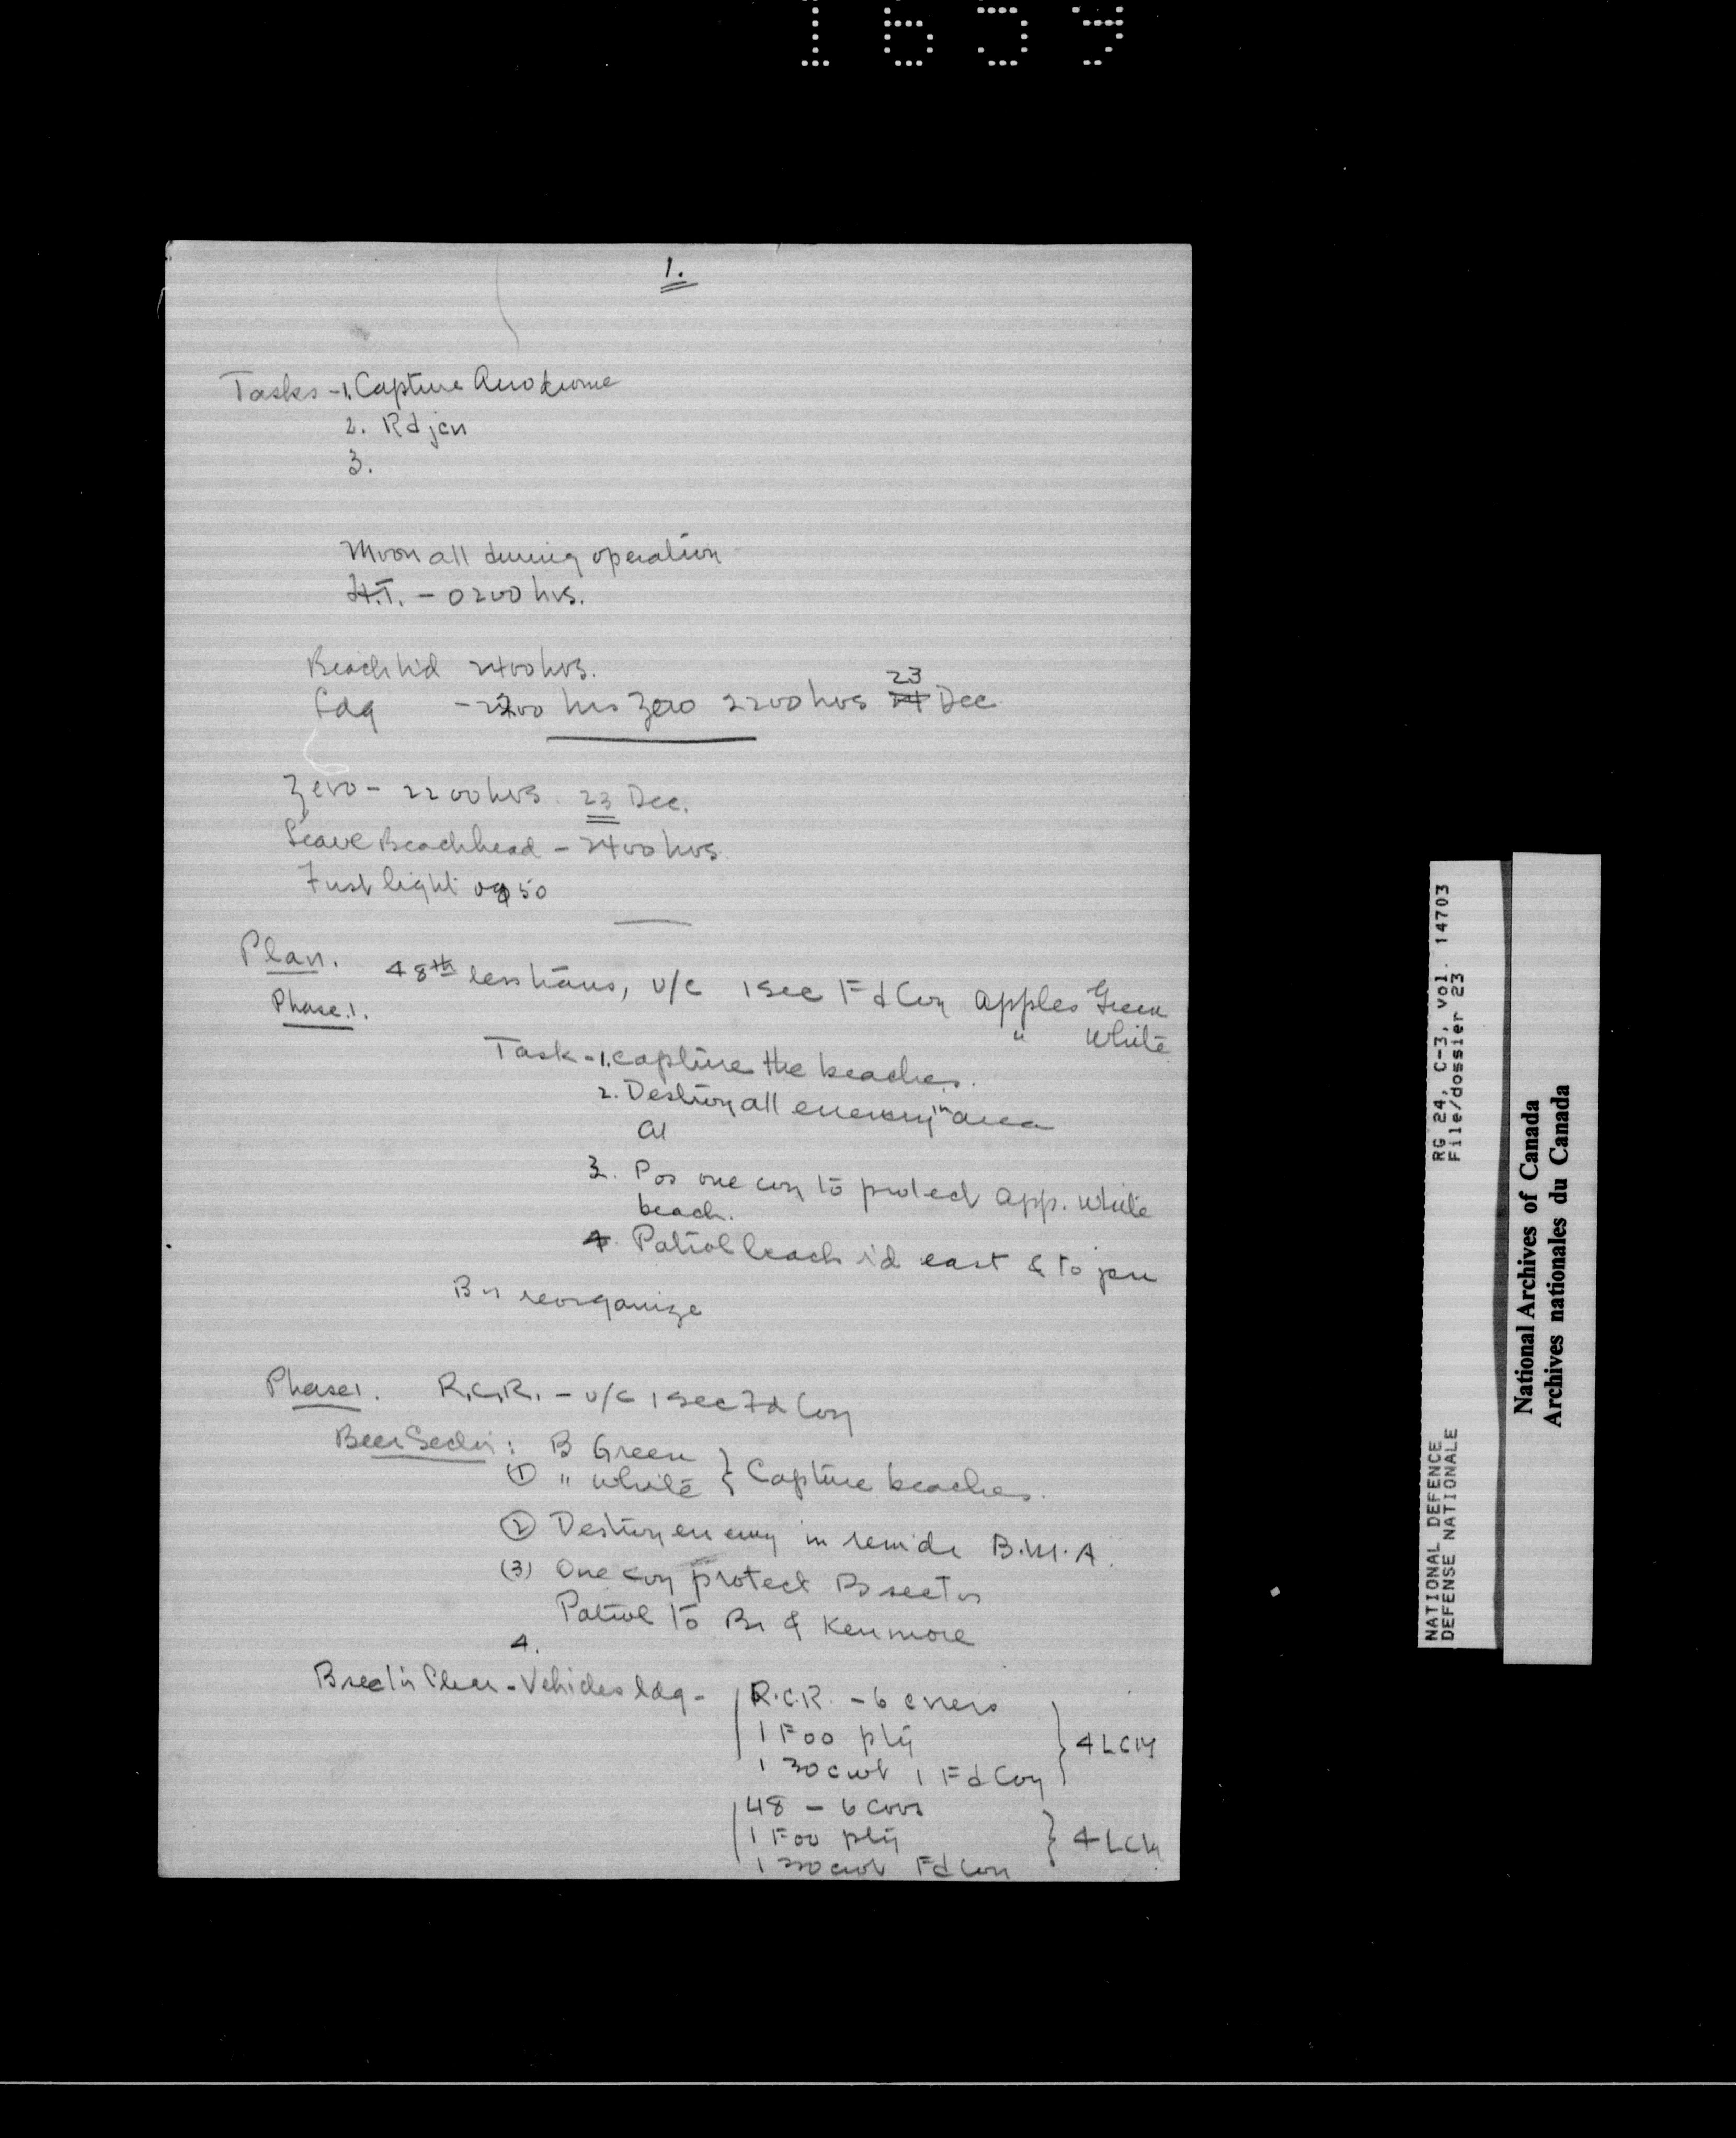 1659
1.
Tasks - 1. Capture Aerodrome
2. Rd jcn
3.
Moon all during operation
H.T. - 0200 hrs.
Beach h'd 2400 hrs.
Ldg - 2200 hrs Zero 2200 hrs 23 Dec
Zero - 2200 hrs. 23 Dec.
Leave Beachhead - 2400 hrs.
First light 0950
Plan.
48th less trans, u/c 1 sec Fd Coy Apples Green
Phase.1.
" White
Task - 1. capture the beaches.
2. Destroy all enemy in area
A1
3. Pos one coy to protect App. White
beach.
4. Patrol beach rd east & to jcn
Bn reorganize
Phase 1. R.C.R. - u/c 1 sec Fd Coy
Beer Sector: B Green
① " White } Capture beaches.
② Destroy enemy in B.M.A.
(3) One coy protect B sector
Patrol to Br & Kenmore
4.
B sector Clear - Vehicles ldg -
R.C.R. - 6 crrers
1 Foo pty
1 30 cwt 1 Fd Coy } 4 LCM
48 - 6 crrs
1 Foo pty } 4 LCM
1 30 cwt Fd Coy
NATIONAL DEFENCE RG 24, C-3, vol. 14703
DEFENSE NATIONALE File/dossier 23
National Archives of Canada
Archives nationales du Canada